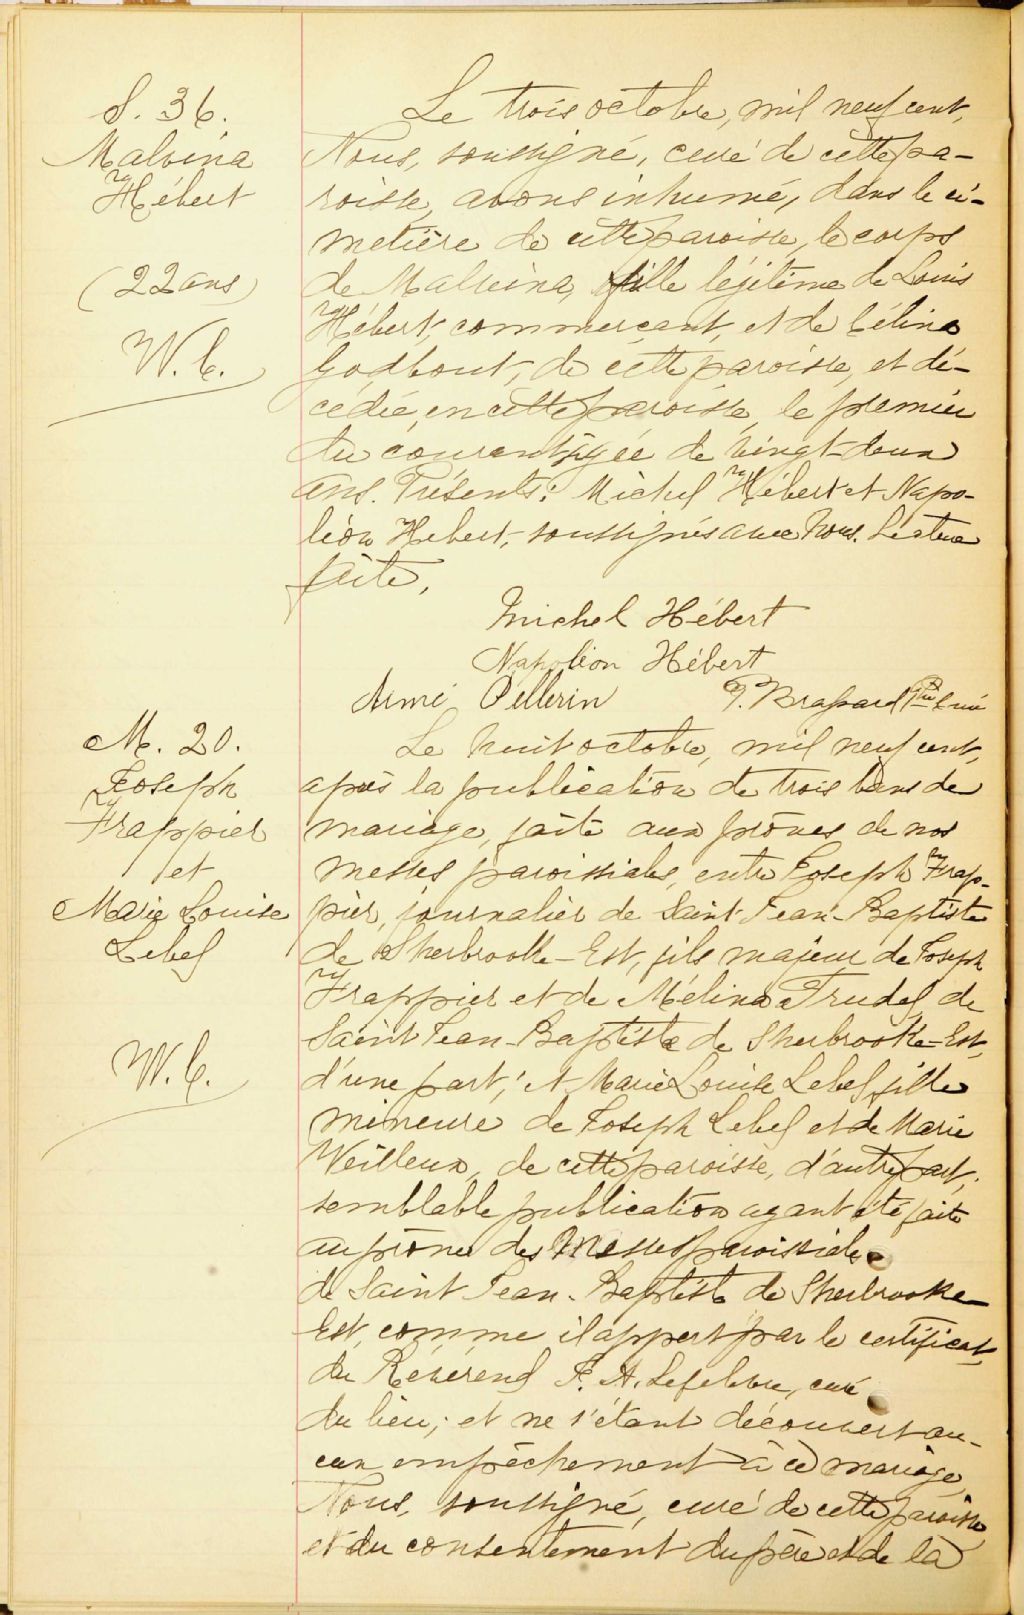 S. 36.
Malvina
Hébert
(22 ans)
W. C.
Le trois octobre, mil neuf cent,
Nous, soussigné, curé de cette pa-
roisse, avons inhumé, dans le ci-
metière de cette paroisse, le corps
de Malvina, fille légitime de Louis
Hébert, commerçant, et de Célina
Godbout, de cette paroisse, et dé-
cédée, en cette paroisse, le premier
du courant, âgée de vingt-deux
ans. Présents: Michel Hébert et Napo-
léon Hébert, soussignés avec Nous. Lecture
faite.
Michel Hébert
Napoléon Hébert
Aimé Pellerin P. Brassard Ptre Curé
M. 20.
Joseph
Frappier
et
Marie Louise
Lebel
W. C.
Le huit octobre, mil neuf cent,
après la publication de trois bans de
mariage, faite aux prônes de nos
messes paroissiales, entre Joseph Frap-
pier, journalier de Saint-Jean-Baptiste
de Sherbrooke-Est, fils majeur de Joseph
Frappier et de Mélina Trudel, de
Saint Jean-Baptiste de Sherbrooke-Est,
d'une part; et Marie Louise Lebel, fille
mineure de Joseph Lebel et de Marie
Veilleux, de cette paroisse, d'autre part;
semblable publication ayant été faite
au prônes des Messes paroissiales
de Saint Jean-Baptiste de Sherbrooke
Est, comme il appert par le certificat
du Révérend F. H. Lefebvre, curé
du lieu; et ne s'étant découvert au-
cun empêchement à ce mariage,
Nous, soussigné, curé de cette paroisse,
et du consentement du père et de la